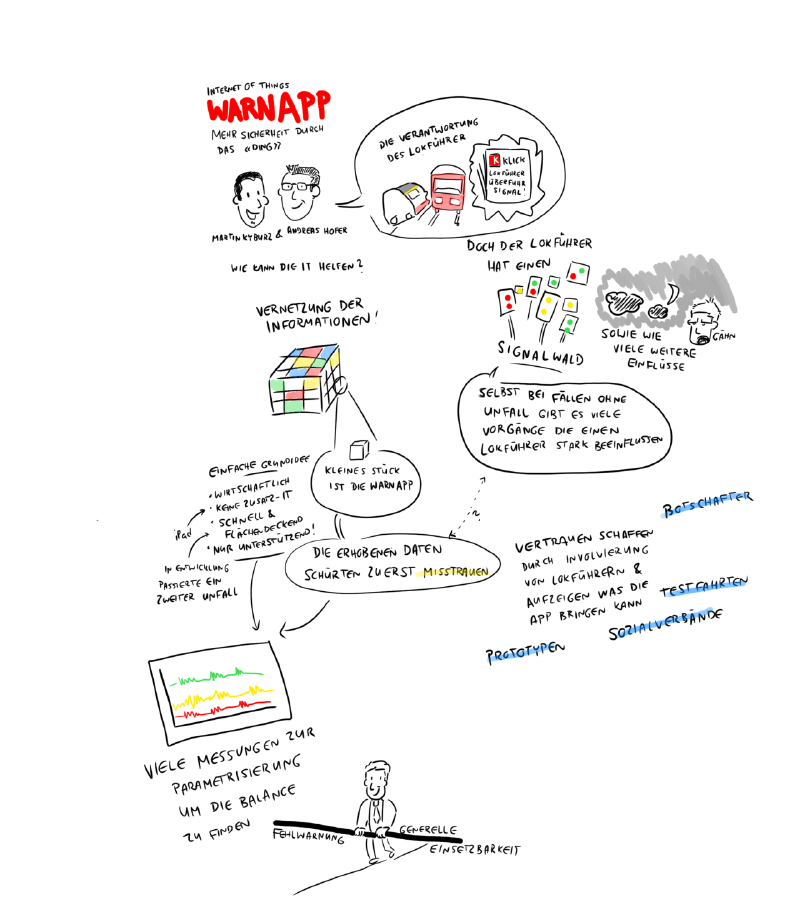 INTERNET OF THINGS
WARNAPP
MEHR SICHERHEIT DURCH
DAS «DING»?
MARTIN KYBURZ & ANDREAS HOFER
DIE VERANTWORTUNG
DES LOKFÜHRER
K KLICK
LOKFÜHRER
ÜBERFUHR
SIGNAL!
WIE KANN DIE IT HELFEN?
DOCH DER LOKFÜHRER
HAT EINEN
SIGNALWALD
GÄHN
SOWIE WIE
VIELE WEITERE
EINFLÜSSE
VERNETZUNG DER
INFORMATIONEN!
SELBST BEI FÄLLEN OHNE
UNFALL GIBT ES VIELE
VORGÄNGE DIE EINEN
LOKFÜHRER STARK BEEINFLUSSEN
KLEINES STÜCK
IST DIE WARNAPP
EINFACHE GRUNDIDEE
• WIRTSCHAFTLICH
• KEINE ZUSATZ-IT
• SCHNELL &
FLÄCHENDECKEND
• NUR UNTERSTÜTZEND!
iPad
IN ENTWICKLUNG
PASSIERTE EIN
ZWEITER UNFALL
DIE ERHOBENEN DATEN
SCHÜRTEN ZUERST MISSTRAUEN
?
BOTSCHAFTER
VERTRAUEN SCHAFFEN
DURCH INVOLVIERUNG
VON LOKFÜHRERN &
AUFZEIGEN WAS DIE
APP BRINGEN KANN
TESTFAHRTEN
SOZIALVERBÄNDE
PROTOTYPEN
VIELE MESSUNGEN ZUR
PARAMETRISIERUNG
UM DIE BALANCE
ZU FINDEN
FEHLWARNUNG
GENERELLE
EINSETZBARKEIT